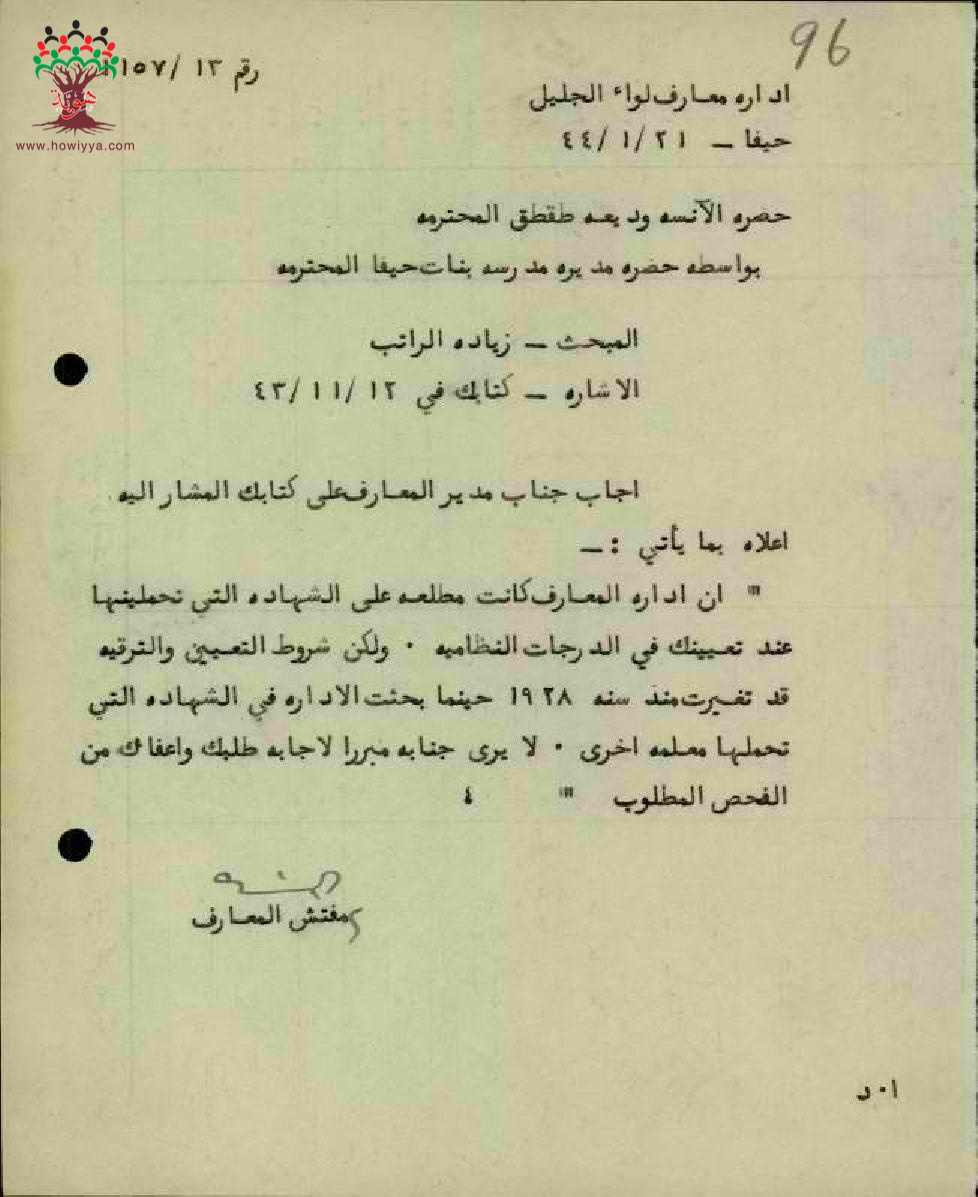 96
رقم ١٣ /١١٥٧
هوية
www.howiyya.com
اداره معارف لواء الجليل
حيفا – ٤٤/١/٢١
حضره الآنسه وديعه طقطق المحترمه
بواسطه حضره مديره مدرسه بنات حيفا المحترمه
المبحث – زياده الراتب
الاشاره – كتابك في ٤٣/١١/١٢
اجاب جناب مدير المعارف على كتابك المشار اليه
اعلاه بما يأتي :–
" ان اداره المعارف كانت مطلعه على الشهاده التي تحملينها
عند تعيينك في الدرجات النظاميه ٠ ولكن شروط التعيين والترقيه
قد تغيرت منذ سنه ١٩٢٨ حينما بحثت الاداره في الشهاده التي
تحملها معلمه اخرى ٠ لا يرى جنابه مبررا لاجابه طلبك واعفاك من
الفحص المطلوب " ٤
مفتش المعارف
ا٠د